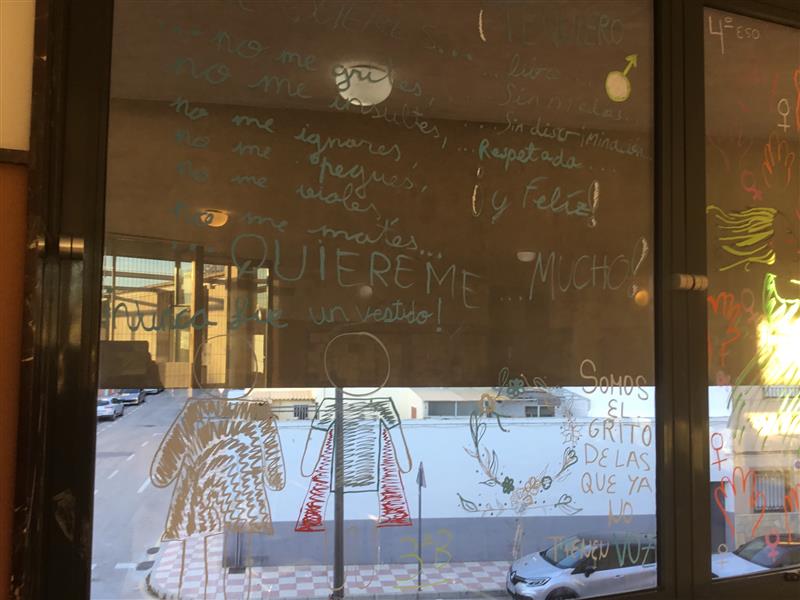 ¡TE QUIERO
... no me grites,
no me insultes,
no me ignores,
no me pegues,
no me violes,
no me mates...
... QUIEREME ... MUCHO!
Nunca fue un vestido!
... libre ...
... Sin miedos...
... Sin discriminación...
... Respetada ...
¡y Felíz!
SOMOS
EL
GRITO
DE LAS
QUE YA
NO
TIENEN VOZ
3ºB
4º ESO